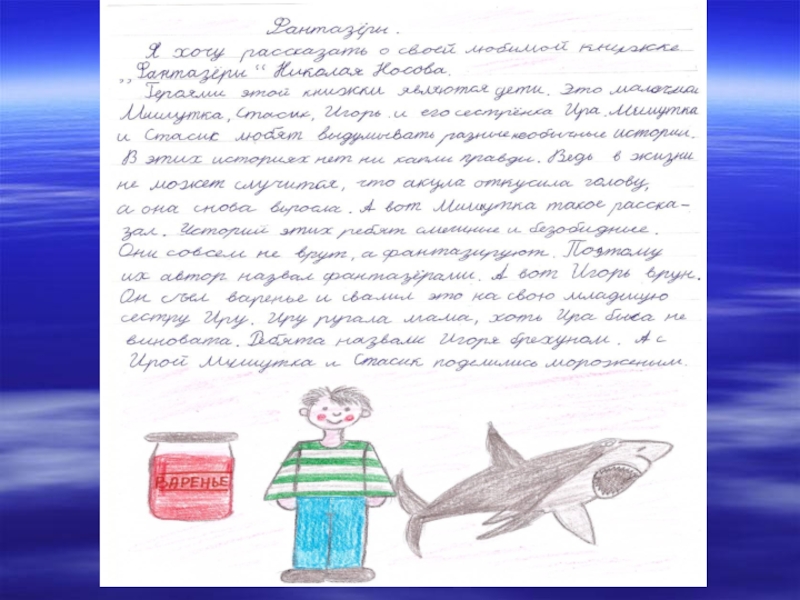 Фантазёры.
Я хочу рассказать о своей любимой книжке
„Фантазёры“ Николая Носова.
Героями этой книжки являются дети. Это мальчики
Мишутка, Стасик, Игорь и его сестрёнка Ира. Мишутка
и Стасик любят выдумывать разные необычные истории.
В этих историях нет ни капли правды. Ведь в жизни
не может случится, что акула откусила голову,
а она снова выросла. А вот Мишутка такое расска-
зал. Истории этих ребят смешные и безобидные.
Они совсем не врут, а фантазируют. Поэтому
их автор назвал фантазёрами. А вот Игорь врун.
Он съел варенье и свалил это на свою младшую
сестру Иру. Иру ругала мама, хоть Ира была не
виновата. Ребята назвали Игоря брехуном. А с
Ирой Мишутка и Стасик поделились мороженым.
ВАРЕНЬЕ